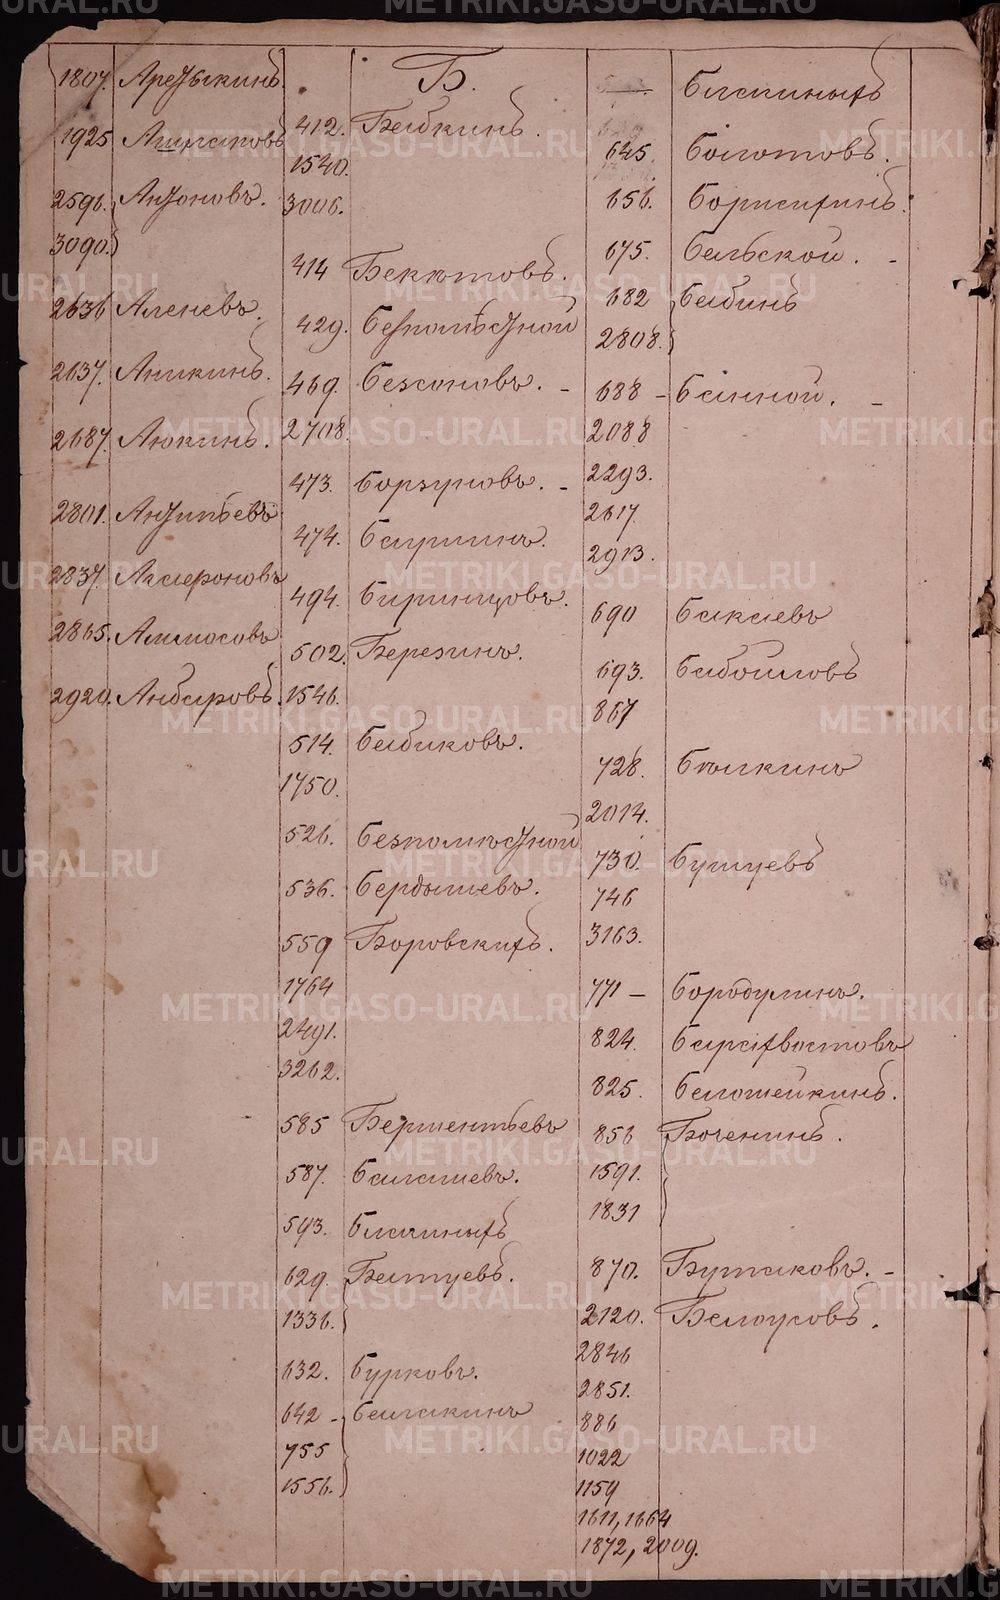 1807. Аретыкинъ.
1925 Ашпаковъ
2596. Антоновъ.
3090.
2636 Аленевъ.
2637. Аникинъ.
2687. Анокинъ.
2801. Антипьевъ
2837. Агаероновъ
2865. Аммосовъ
2929. Анбаровъ.
Б.
412. Бабкинъ.
1540.
3006.
414 Бекютовъ.
429. Безпомѣстной
469. Безсоновъ. -
2708.
473. Борзуновъ. -
474. Баушинъ.
494. Биринцовъ.
502. Березинъ.
1546.
514. Бабиковъ.
1750.
526. Безпомѣстной
536. Бердышевъ.
559 Боровскихъ.
1764
2491.
3262.
585 Берментьевъ
587. Балашевъ.
593. Блиниыхъ
629. Батуевъ.
1336.
632. Бурковъ.
642 - Балакинъ
755
1556.
645. Болотовъ.
656. Борисихинъ.
675. Бельской. -
682 Бабинъ
2808.
688 - Банной. -
2088
2293.
2617
2913.
690 Бакаевъ
693. Бабойловъ
867
728. Бѣлкинъ
2014.
730. Бушуевъ
746
3163.
771 - Бородулинъ.
824. Барахвостовъ
825. Белошейкинъ.
856 Боченинъ.
1591.
1831
870. Бутаковъ. -
2120. Белоусовъ.
2846
2851.
886
1022
1159
1611, 1664
1872, 2009.